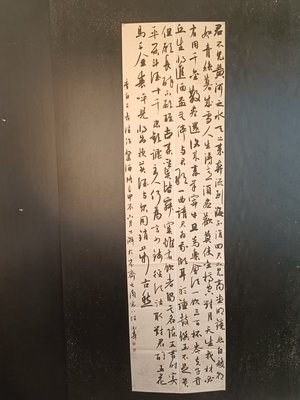 君不見黃河之水天上來奔流到海不復回君不見高堂明鏡悲白髮朝
如青絲暮成雪人生得意須盡歡莫使金樽空對月天生我材必
有用千金散盡還復來烹羊宰牛且為樂會須一飲三百杯岑夫子丹
丘生將進酒君莫停與君歌一曲請君為我側耳聽鐘鼓饌玉不足貴
但願長醉不願醒古來聖賢皆寂寞惟有飲者留其名陳王昔時宴
平樂斗酒十千恣歡謔主人何為言少錢徑須沽取對君酌五花
馬千金裘呼兒將出換美酒與爾同銷萬古愁
李白